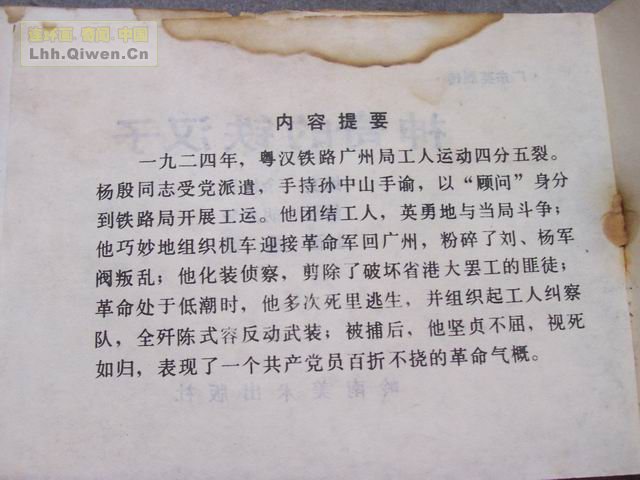 连环画.奇闻.中国
Lhh.Qiwen.Cn
内容提要
一九二四年，粤汉铁路广州局工人运动四分五裂。
杨殷同志受党派遣，手持孙中山手谕，以“顾问”身分
到铁路局开展工运。他团结工人，英勇地与当局斗争；
他巧妙地组织机车迎接革命军回广州，粉碎了刘、杨军
阀叛乱；他化装侦察，剪除了破坏省港大罢工的匪徒；
革命处于低潮时，他多次死里逃生，并组织起工人纠察
队，全歼陈式容反动武装；被捕后，他坚贞不屈，视死
如归，表现了一个共产党员百折不挠的革命气概。
岭南美术出版社